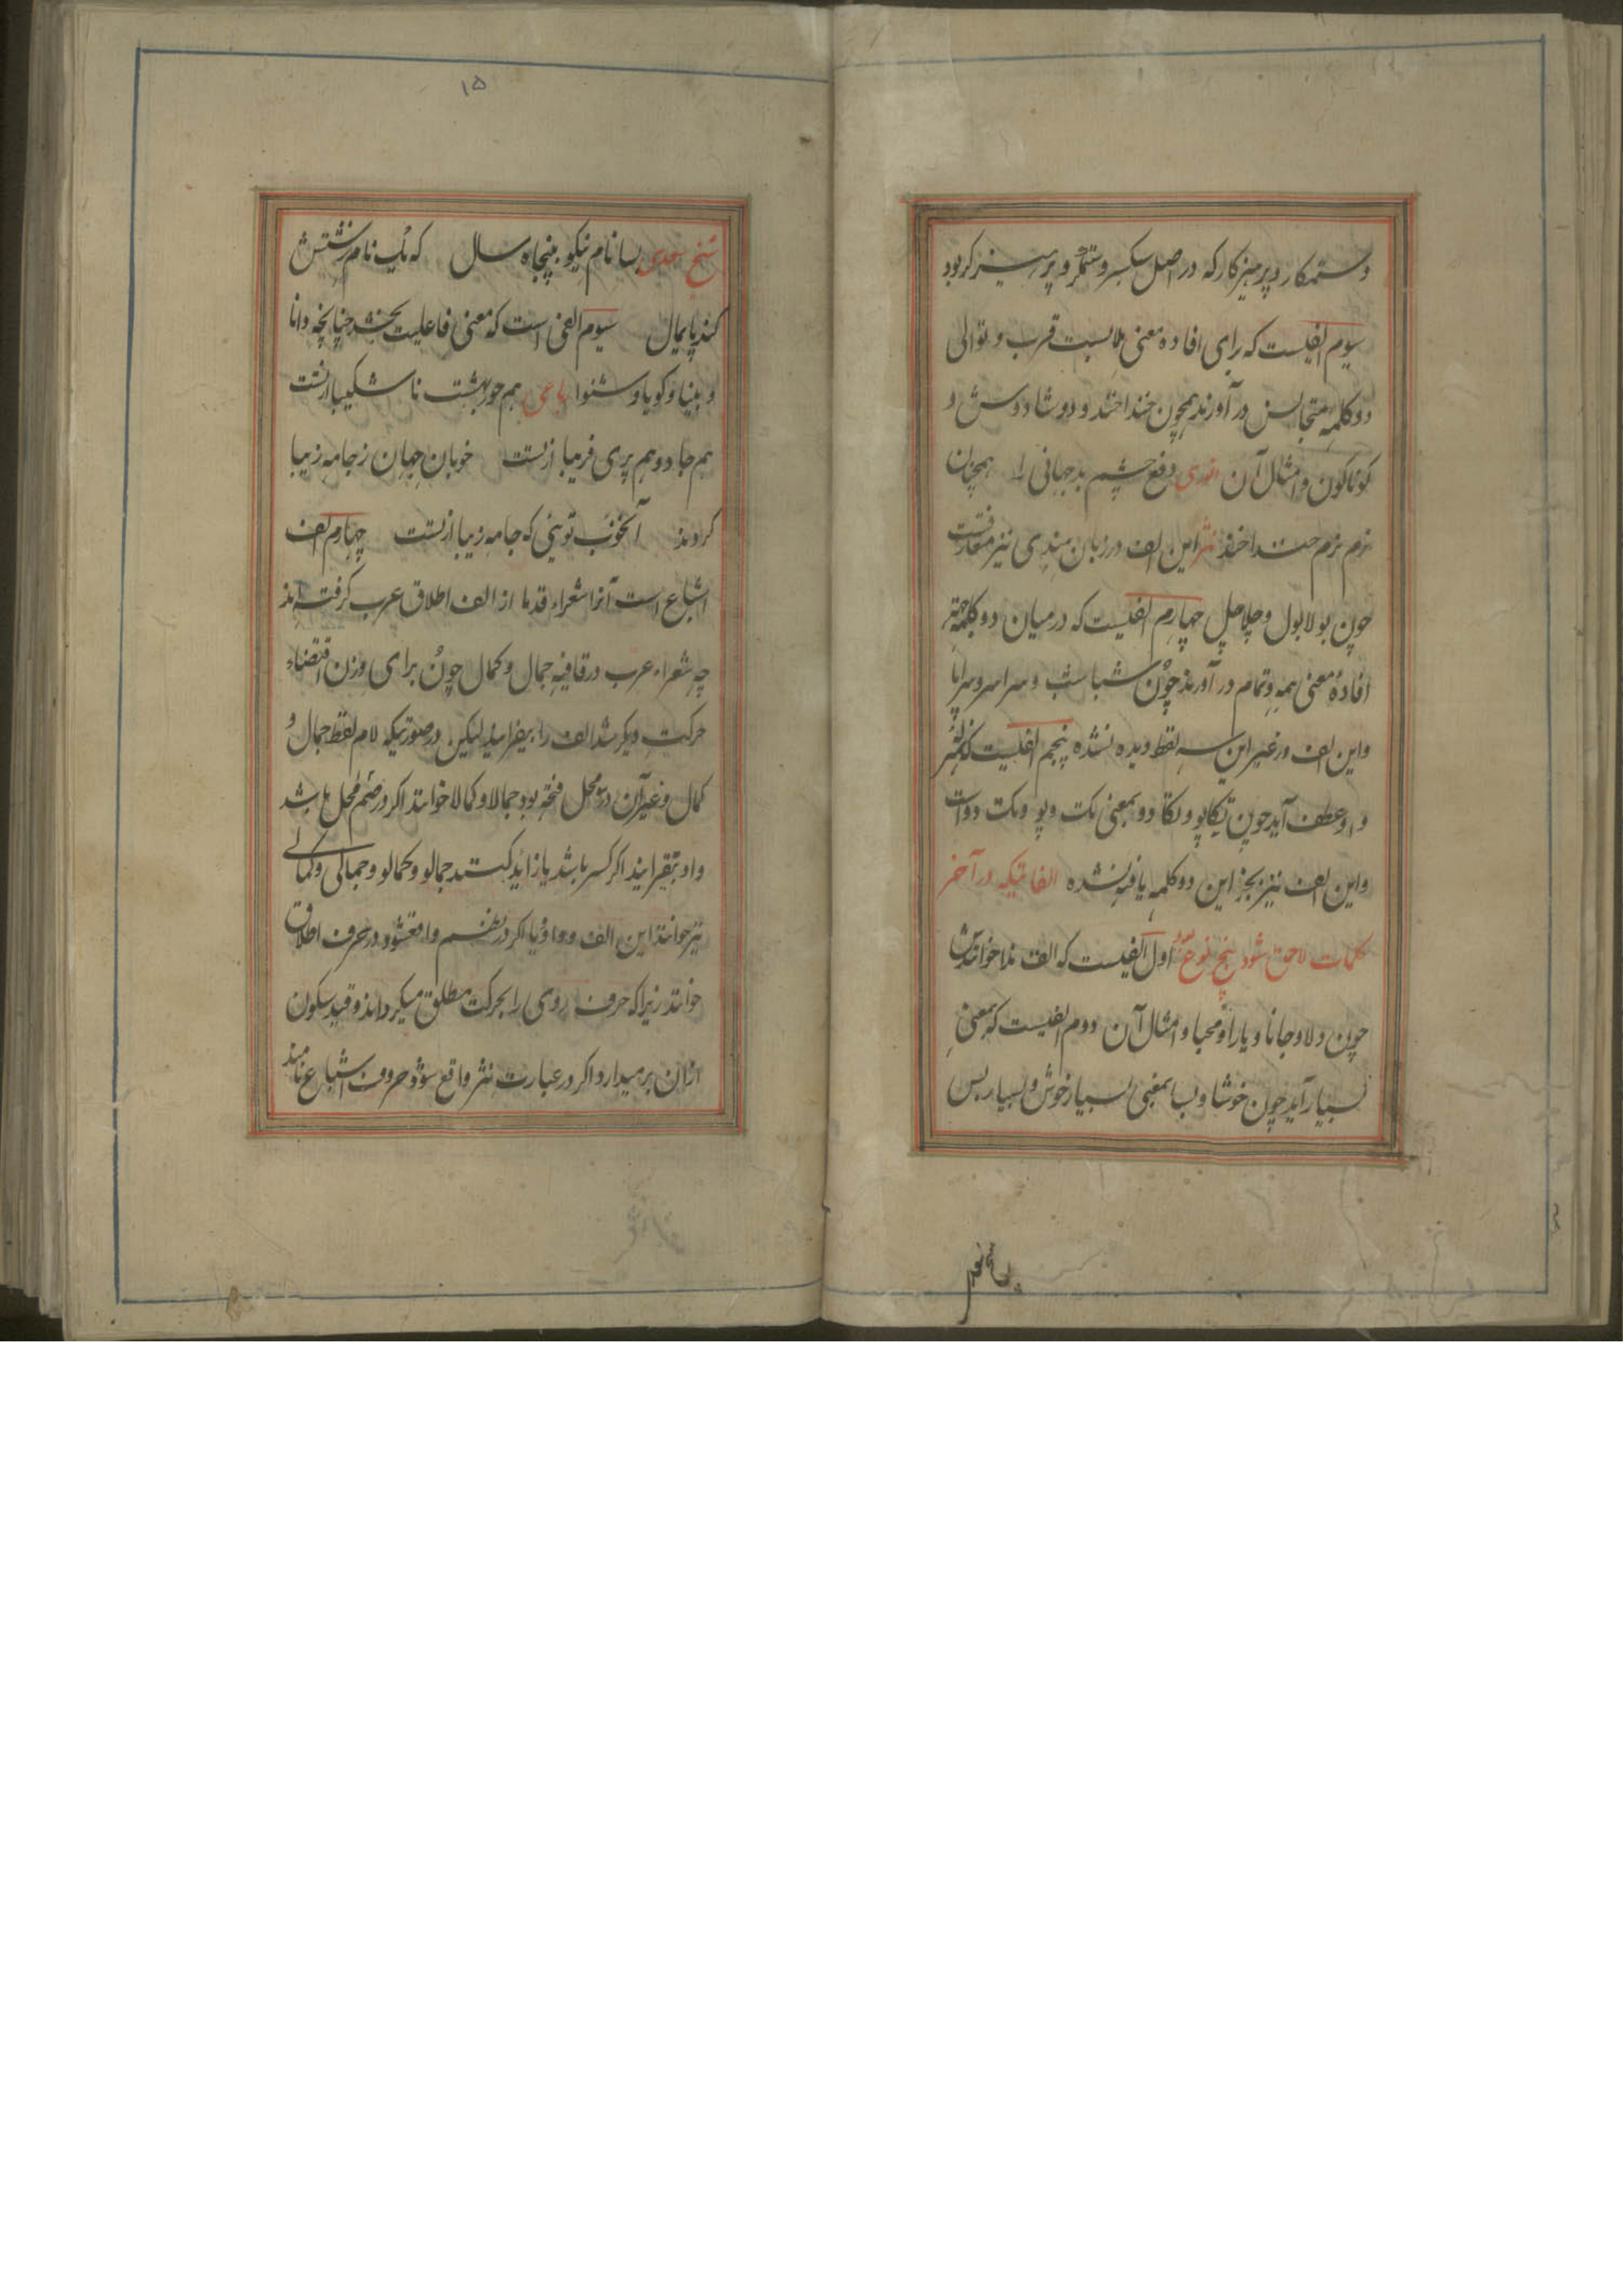 و ستمکار و پرهیزکار که در اصل سبکسر و ستمگر و پرهیزکر بود
سیوم الفیست که برای افاده معنی ملابست قرب و توالی
دو کلمه متجانس در آورند همچون خنداخند و دوشادوش و
کوناکون و امثال آن انوری دفع چشم بد جهانی را همچنان
نرم نرم خنداخند نثر این الف در زبان هندی نیز متعارفست
چون بولابول و چلاچل چهارم الفیست که در میان دو کلمه بهر
افادهٔ معنی همه و تمام در آورند چون شباشب و سراسر و سراپا
و این الف در غیر این سه لفظ دیده نشده پنجم الفیست که بمعنی
واو عطف آید چون تکاپو و تکادو بمعنی تک و پو و تک و دو است
و این الف نیز بجز این دو کلمه یافته نشده الفاتیکه در آخر
کلمات لاحق شود پنج نوع اول الفیست که الف ندا خوانندش
چون دلا و جانا و یارا و محبا و امثال آن دوم الفیست که بمعنی
بسیار آید چون خوشا و بسا بمعنی بسیار خوش و بسیار بس
۱۵
شیخ سعدی بسا نام نیکو پنجاه سال که یک نام زشتش
کند پایمال سیوم الفی است که معنی فاعلیت بخشد چنانچه دانا
و بینا و کویا و شنوا رباعی هم حور بهشت ناشکیبا از تست
هم جادو و هم پری فریبا از تست خوبان جهان ز جامه زیبا
کردند آنخوب تویی که جامه زیبا از تست چهارم الف
اشباع است آنرا شعراء قدما از الف اطلاق عرب کرفته اند
چه شعراء عرب در قافیه جمال و کمال چون برای وزن اقتضاء
حرکت دیگر شد الف را بیفزایند لیکن در صورتیکه لام لفظ جمال و
کمال و غیر آن در محل فتحه بود جمالا و کمالا خوانند اکر در ضم محل باشد
واو بیفزایند اکر کسر باشد یا زائد کنند جمالو و کمالو و جمالی و کمالی
نیز خوانند این الف و واو یا اکر در نظم واقع شود در حرف اطلاق
خوانند زیرا که حرف روی را بحرکت مطلق میکرداند و قید سکون
ازان برمیدارد اکر در عبارت نثر واقع شود حروف اشباع نامند